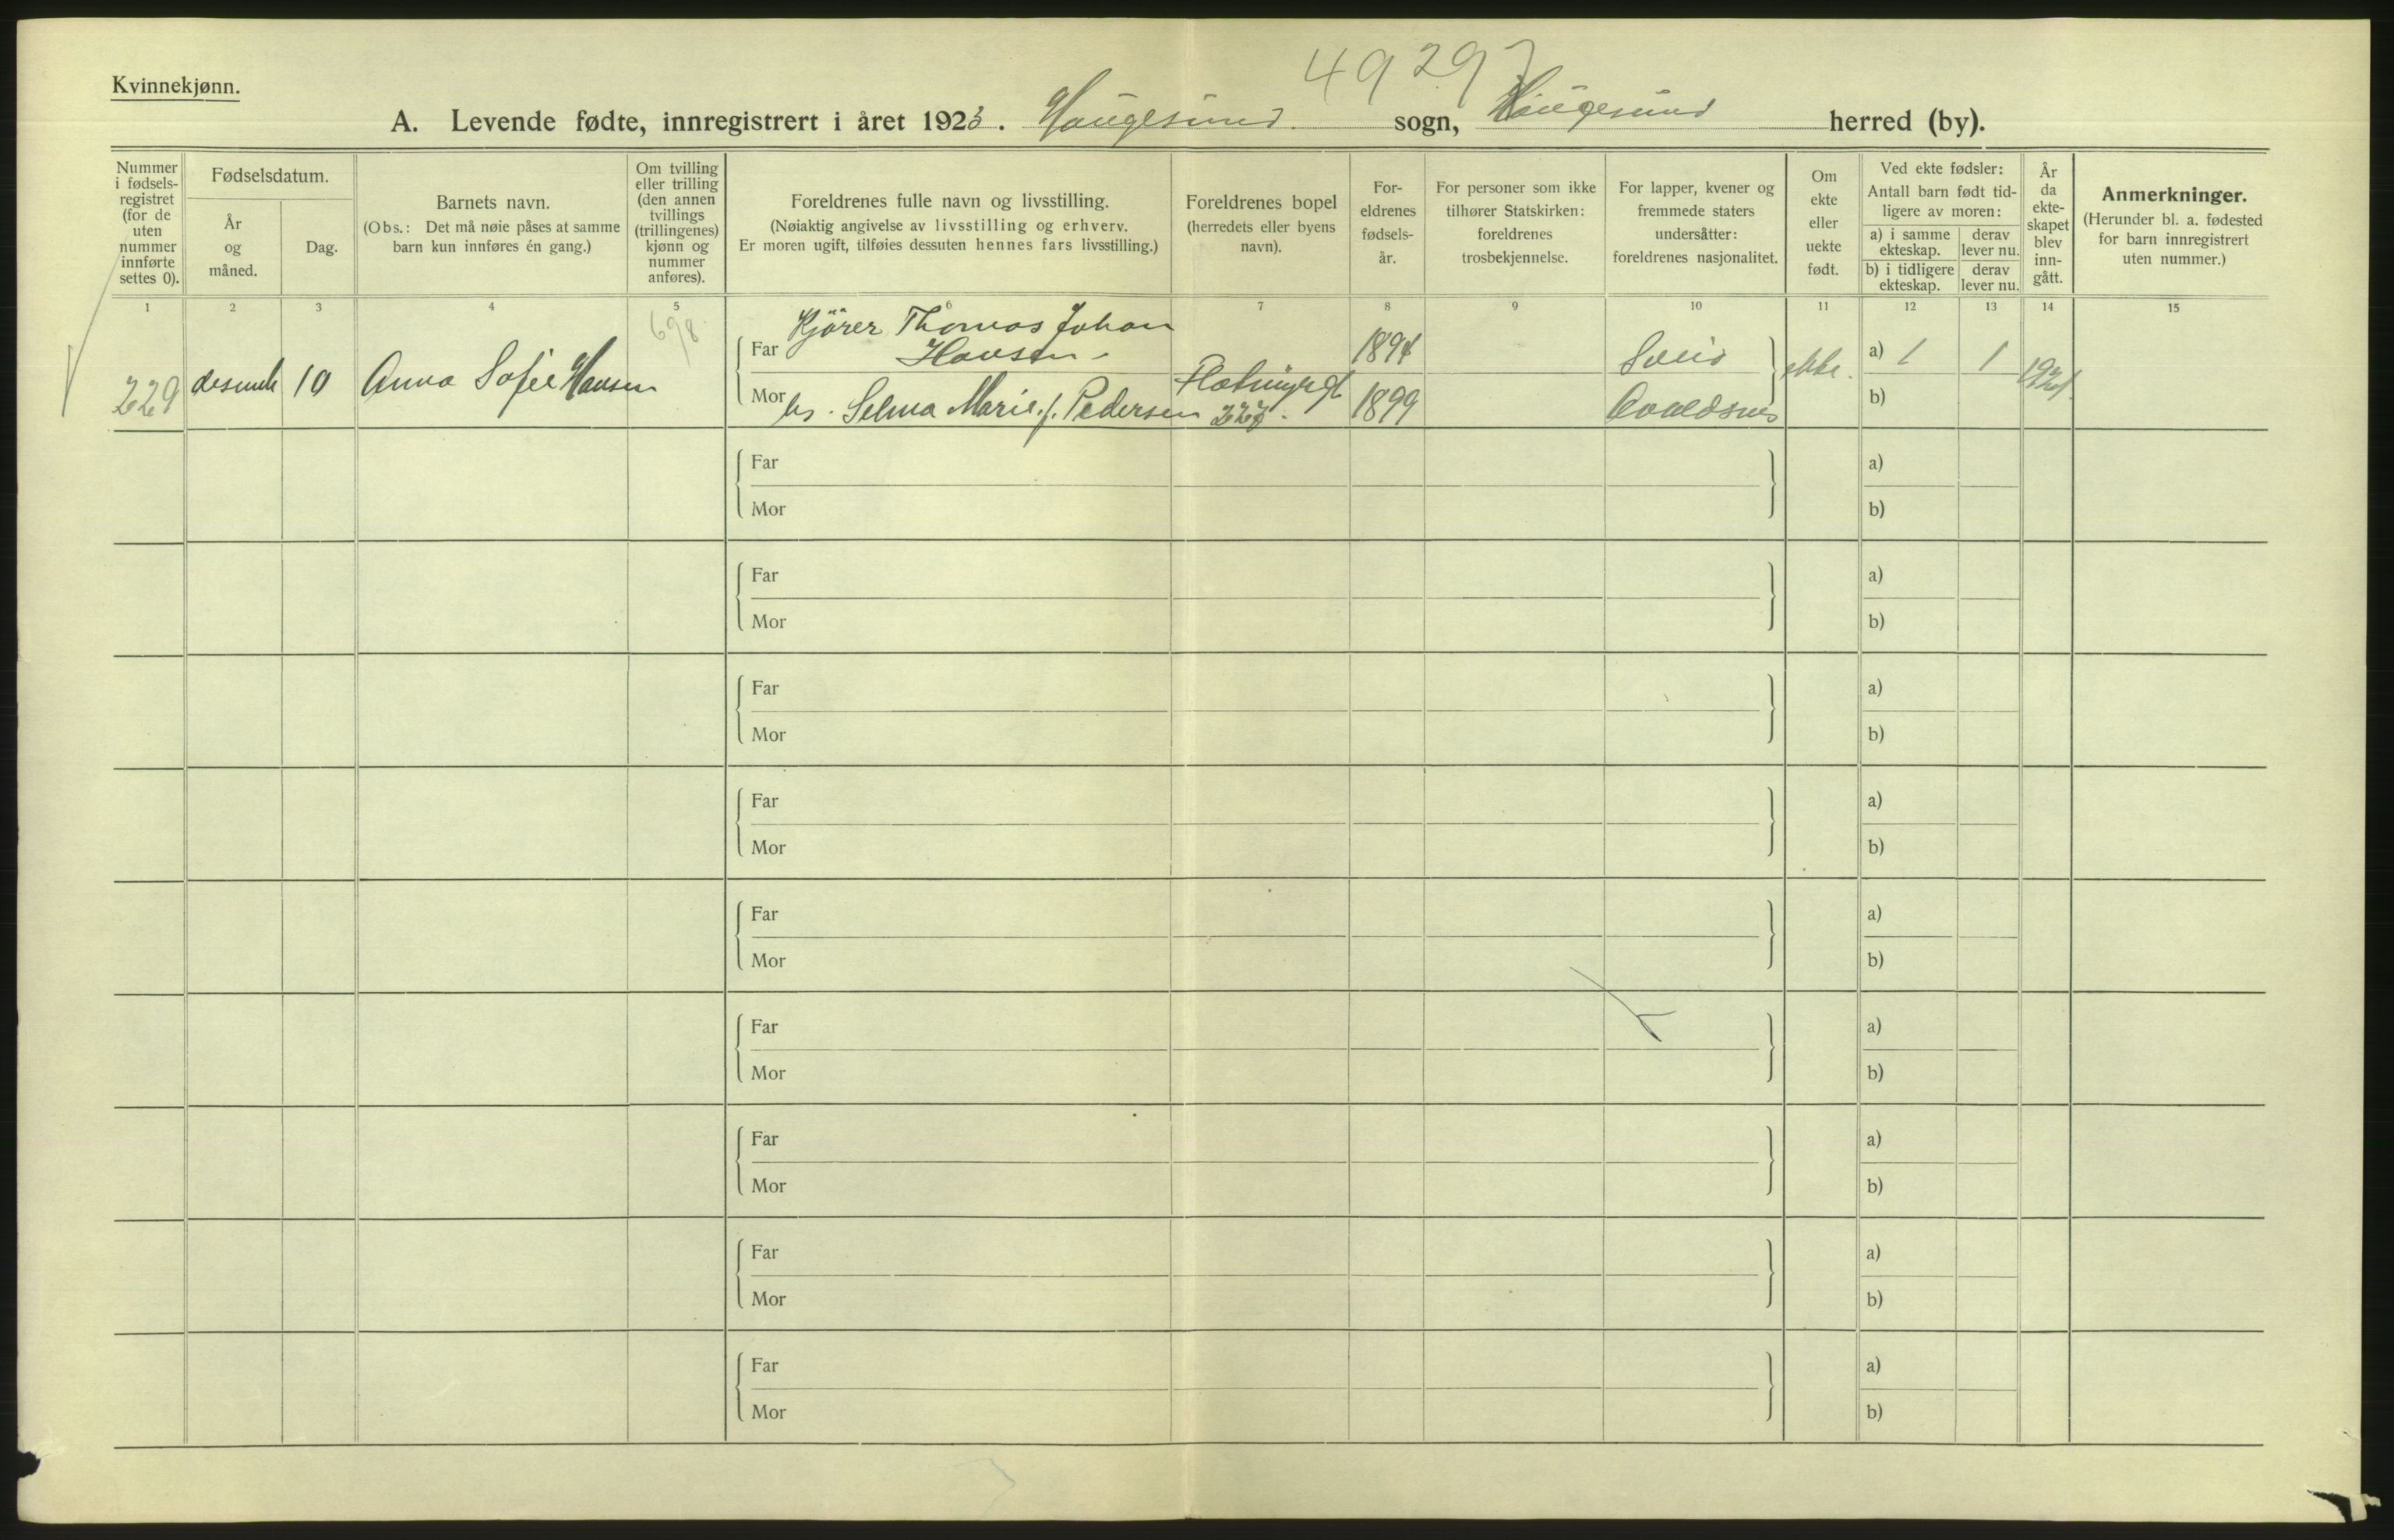 49 297
Kvinnekjønn.
A. Levende fødte, innregistrert i året 1923. Haugesund sogn, Haugesund herred (by).
Nummer i fødselsregistret (for de uten nummer innførte settes 0).
Fødselsdatum.
År og måned.
Dag.
Barnets navn.
(Obs.: Det må nøie påses at samme barn kun innføres én gang.)
Om tvilling eller trilling (den annen tvillings (trillingenes) kjønn og nummer anføres).
Foreldrenes fulle navn og livsstilling.
(Nøiaktig angivelse av livsstilling og erhverv.
Er moren ugift, tilføies dessuten hennes fars livsstilling.)
Foreldrenes bopel
(herredets eller byens navn).
Foreldrenes fødselsår.
For personer som ikke tilhører Statskirken: foreldrenes trosbekjennelse.
For lapper, kvener og fremmede staters undersåtter: foreldrenes nasjonalitet.
Om ekte eller uekte født.
Ved ekte fødsler:
Antall barn født tidligere av moren:
a) i samme ekteskap.
derav lever nu.
b) i tidligere ekteskap.
derav lever nu.
År da ekteskapet blev inngått.
Anmerkninger.
(Herunder bl. a. fødested for barn innregistrert uten nummer.)
1 2 3 4 5 6 7 8 9 10 11 12 13 14 15
698
229 10 Anna Sofie Hansen
Far Kjører Thomas Johan
Hansen 1894 a) 1 1
Mor hs. Selma Marie f. Pedersen 1899 Avaldsnes b)
Far a)
Mor b)
Far a)
Mor b)
Far a)
Mor b)
Far a)
Mor b)
Far a)
Mor b)
Far a)
Mor b)
Far a)
Mor b)
Far a)
Mor b)
Far a)
Mor b)